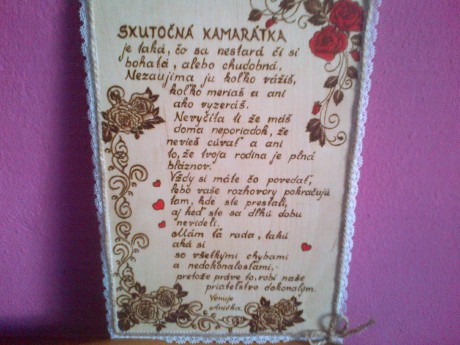 SKUTOČNÁ KAMARÁTKA
je taká, čo sa nestará či si
bohatá, alebo chudobná.
Nezaujíma ju koľko vážiš,
koľko meriaš a ani
ako vyzeráš.
Nevyčíta ti že máš
doma neporiadok, že
nevieš cúvať a ani
to, že tvoja rodina je plná
bláznov.
Vždy si máte čo povedať,
lebo vaše rozhovory pokračujú
tam, kde ste prestali,
aj keď ste sa dlhú dobu
nevideli.
Mám ťa rada, takú
aká si
so všetkými chybami
a nedokonalosťami,
pretože práve to, robí naše
priateľstvo dokonalým.
Venuje
Anička.